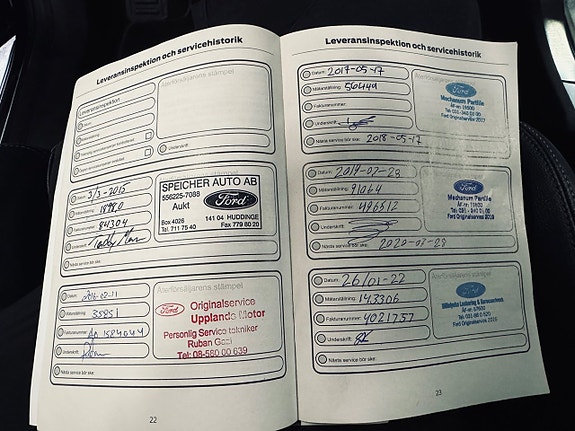 Leveransinspektion och servicehistorik
Återförsäljarens stämpel
Leveransinspektion
Underskrift:
Datum: 3/3-2015
Mätarställning: 18980
Fakturanummer: 84304
Underskrift:
Nästa service bör ske:
SPEICHER AUTO AB
556225-7088
Aukt
Ford
Box 4026 141 04 HUDDINGE
Tel. 711 75 40 Fax 779 80 20
Datum: 2016-02-11
Mätarställning: 35851
Fakturanummer: Ap 1584044
Underskrift:
Nästa service bör ske:
Återförsäljarens stämpel
Ford Originalservice
Upplands Motor
Personlig Service tekniker
Ruban
Tel: 08-580 00 639
22
Leveransinspektion och servicehistorik
Datum: 2017-05-17
Mätarställning: 56449
Fakturanummer:
Underskrift:
Nästa service bör ske: 2018-05-17
Återförsäljarens stämpel
Ford
Mechanum Partille
Ford Originalservice 2017
Datum: 2019-02-28
Mätarställning: 91064
Fakturanummer: 496512
Underskrift:
Nästa service bör ske: 2020-02-28
Ford
Mechanum Partille
Ford Originalservice 2019
Datum: 26/01-22
Mätarställning: 143306
Fakturanummer: 4021757
Underskrift:
Nästa service bör ske:
Återförsäljarens stämpel
Ford
Ford Originalservice
23